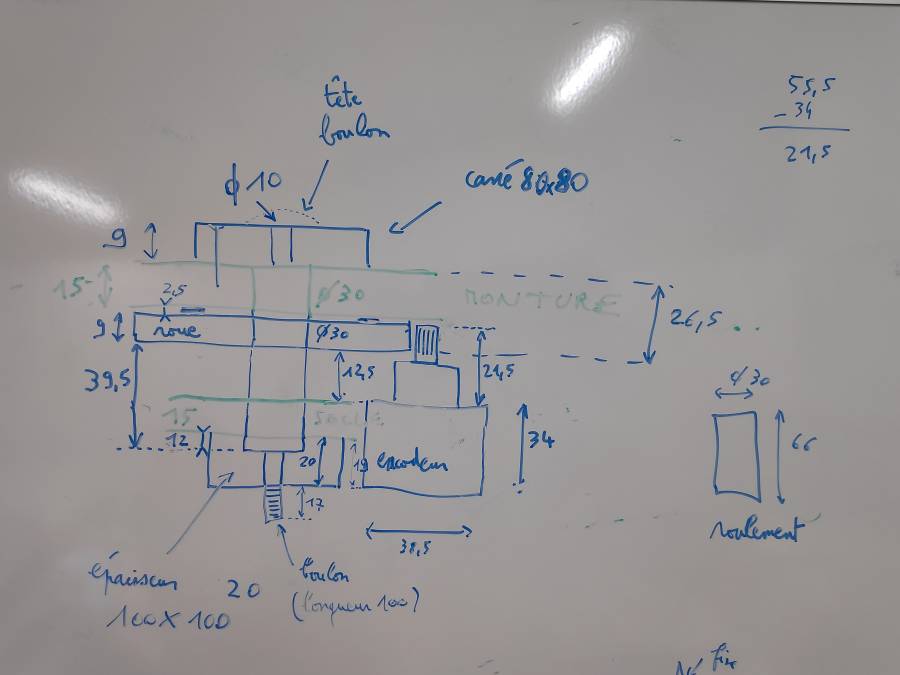 55,5
- 34
21,5
tête
boulon
ϕ 10
carré 80x80
9
15
2,5
ϕ30
MONTURE
26,5
9
roue
ϕ30
39,5
12,5
21,5
15
SOCLE
12
20
19
encodeur
34
ϕ30
66
roulement
17
38,5
épaisseur 20
100 X 100
boulon
(longueur 100)
fix